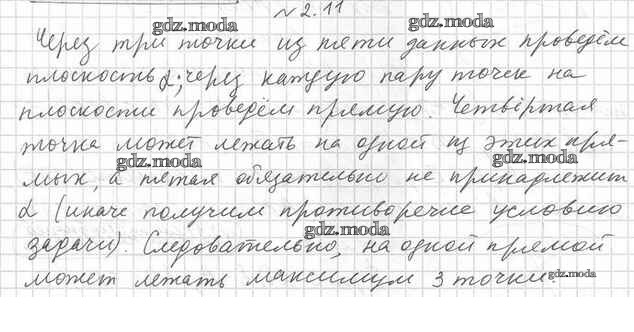 №2.11
gdz.moda
gdz.moda
Через три точки из пяти данных проведём
плоскость α; через каждую пару точек на
gdz.moda
плоскости проведём прямую. Четвёртая
точка может лежать на одной из этих пря-
gdz.moda
gdz.moda
мых, а пятая обязательно не принадлежит
α (иначе получим противоречие условию
gdz.moda
задачи). Следовательно, на одной прямой
может лежать максимум 3 точки.
gdz.moda